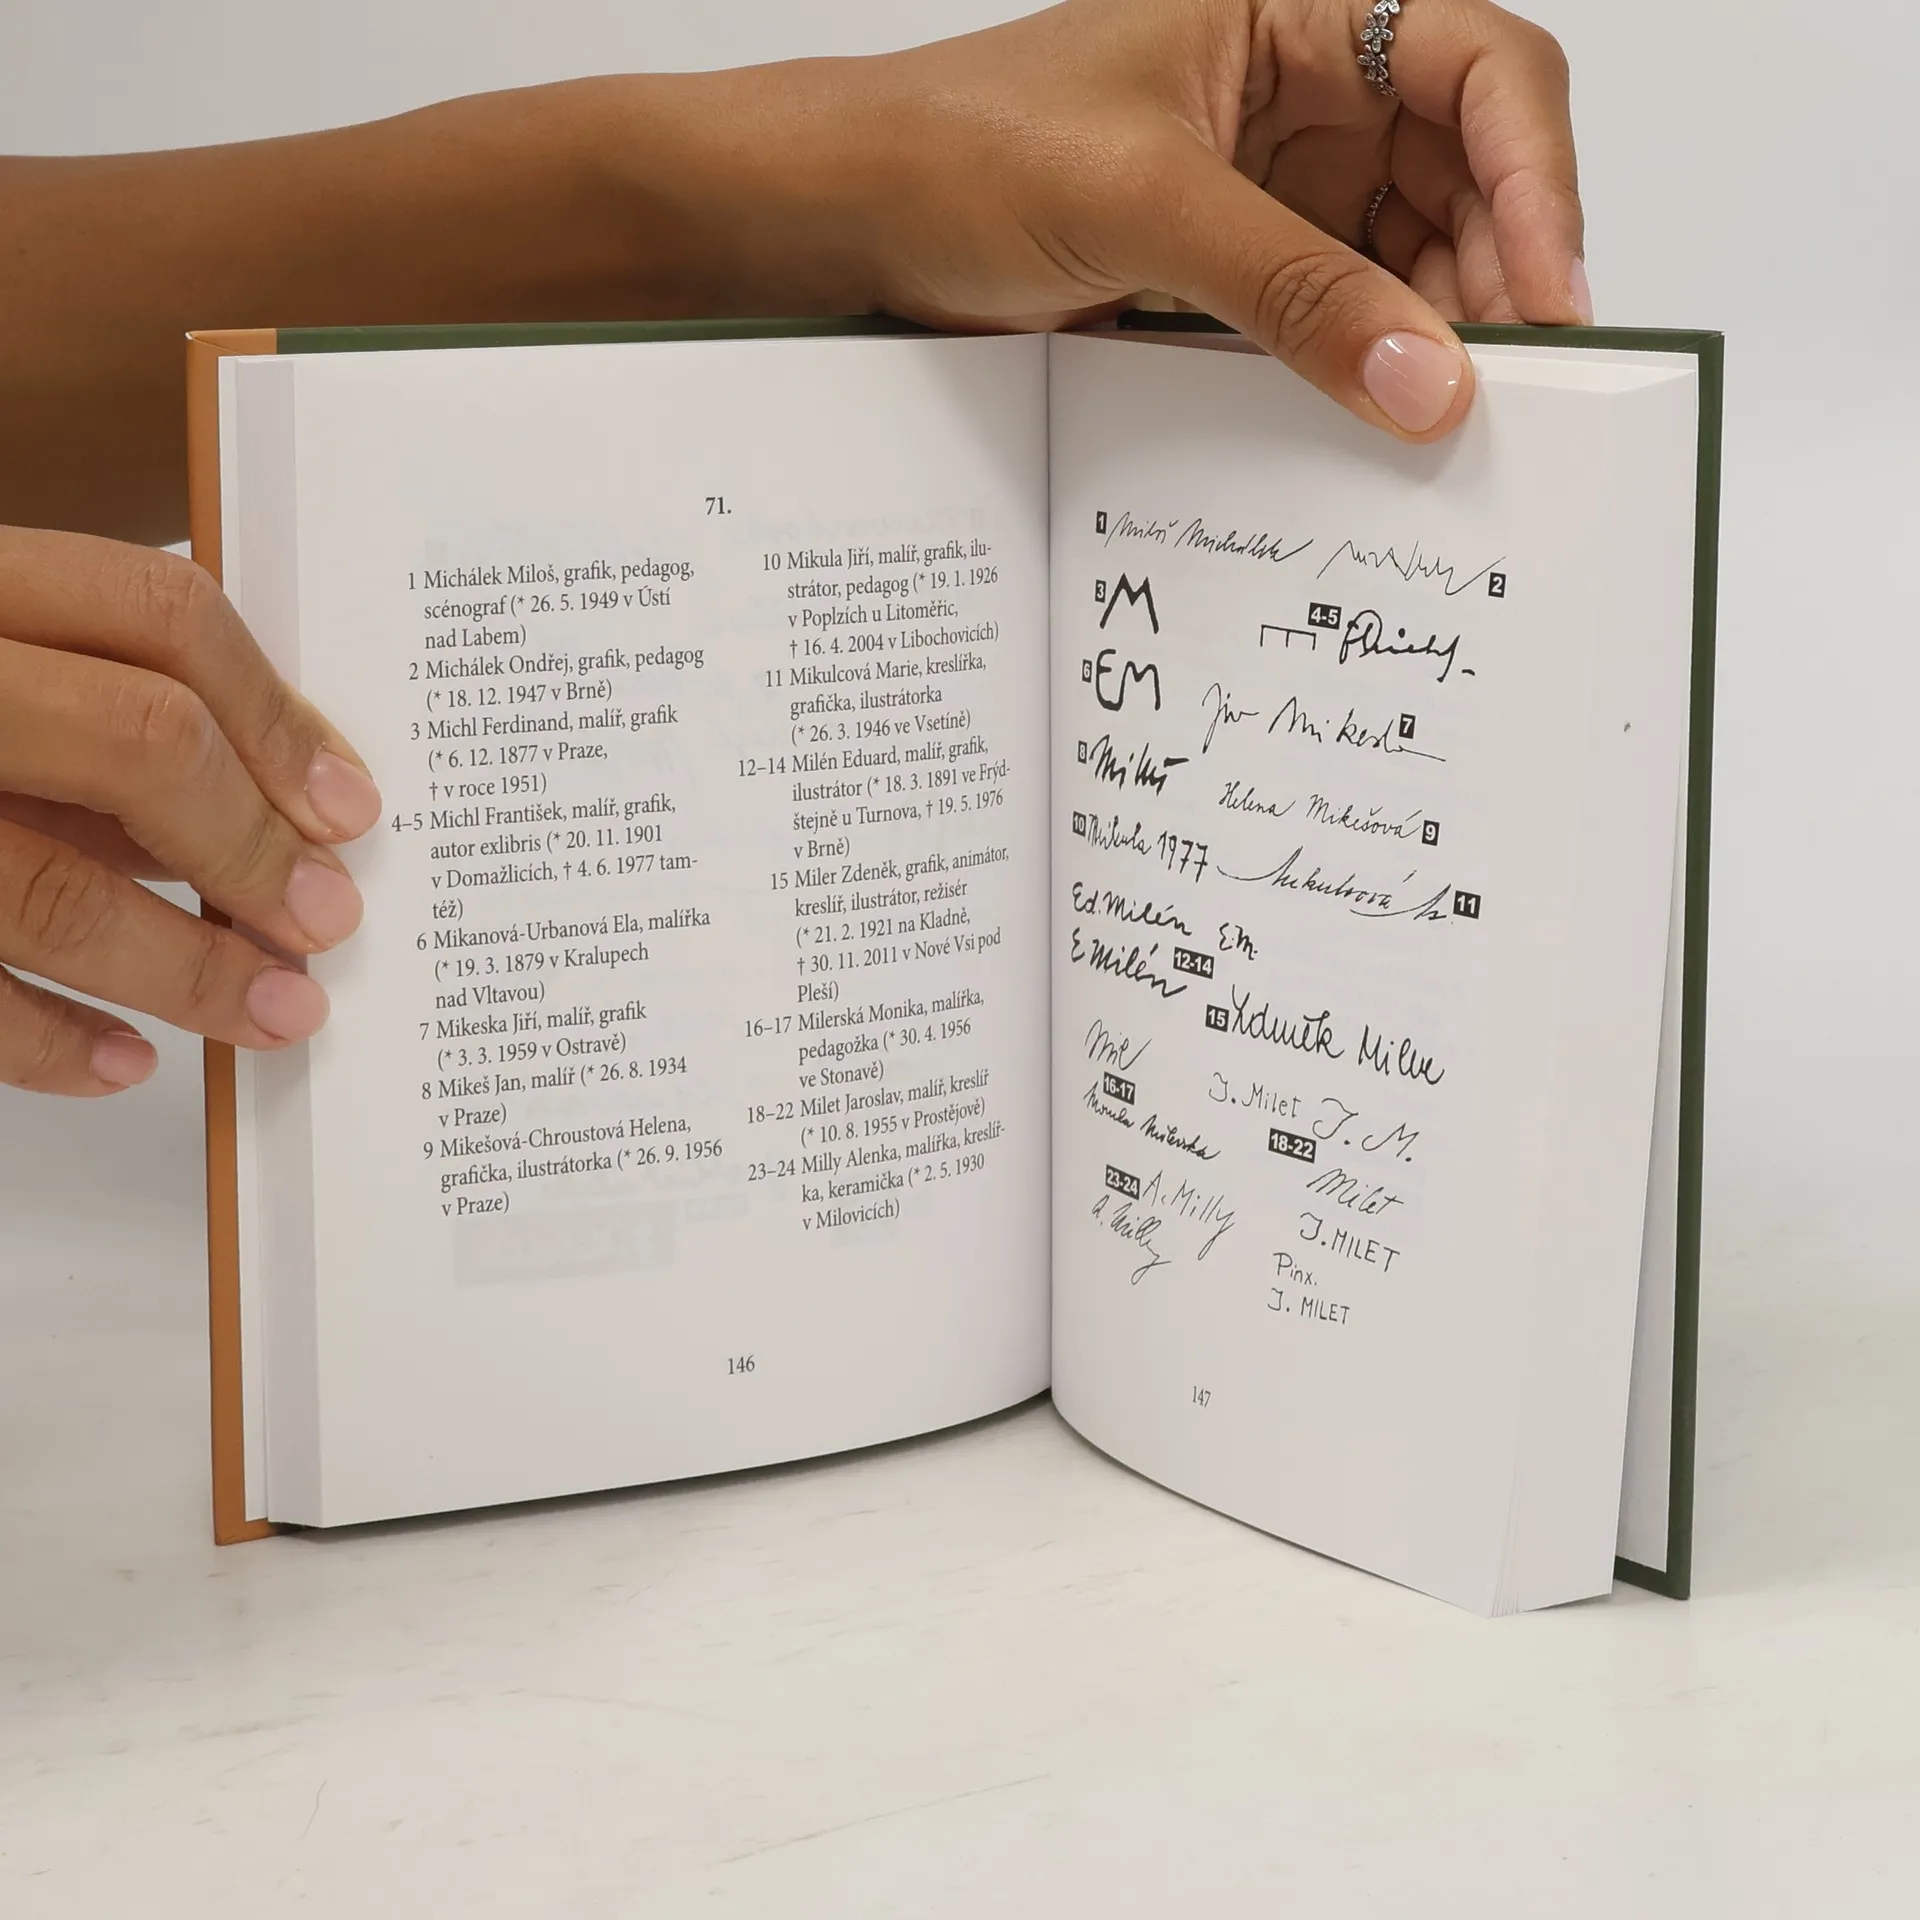 71.
1 Michálek Miloš, grafik, pedagog,
scénograf (* 26. 5. 1949 v Ústí
nad Labem)
2 Michálek Ondřej, grafik, pedagog
(* 18. 12. 1947 v Brně)
3 Michl Ferdinand, malíř, grafik
(* 6. 12. 1877 v Praze,
† v roce 1951)
4–5 Michl František, malíř, grafik,
autor exlibris (* 20. 11. 1901
v Domažlicích, † 4. 6. 1977 tam-
též)
6 Mikanová-Urbanová Ela, malířka
(* 19. 3. 1879 v Kralupech
nad Vltavou)
7 Mikeska Jiří, malíř, grafik
(* 3. 3. 1959 v Ostravě)
8 Mikeš Jan, malíř (* 26. 8. 1934
v Praze)
9 Mikešová-Chroustová Helena,
grafička, ilustrátorka (* 26. 9. 1956
v Praze)
10 Mikula Jiří, malíř, grafik, ilu-
strátor, pedagog (* 19. 1. 1926
v Poplzích u Litoměřic,
† 16. 4. 2004 v Libochovicích)
11 Mikulcová Marie, kreslířka,
grafička, ilustrátorka
(* 26. 3. 1946 ve Vsetíně)
12–14 Milén Eduard, malíř, grafik,
ilustrátor (* 18. 3. 1891 ve Frýd-
štejně u Turnova, † 19. 5. 1976
v Brně)
15 Miler Zdeněk, grafik, animátor,
kreslíř, ilustrátor, režisér
(* 21. 2. 1921 na Kladně,
† 30. 11. 2011 v Nové Vsi pod
Pleší)
16–17 Milerská Monika, malířka,
pedagožka (* 30. 4. 1956
ve Stonavě)
18–22 Milet Jaroslav, malíř, kreslíř
(* 10. 8. 1955 v Prostějově)
23–24 Milly Alenka, malířka, kreslíř-
ka, keramička (* 2. 5. 1930
v Milovicích)
146
1 Miloš Michálek
2
3 M
4-5
6 EM
7 Mikeska
8 Mikeš
Helena Mikešová 9
10 Mikula 1977
Mikulcová 11
Ed. Milén E.M.
E Milén 12-14
15 Zdeněk Miler
Mil
16-17
Monika Milerska
J. Milet J. M.
18-22
Milet
23-24 A. Milly
A. Milly
J. MILET
Pinx.
J. MILET
147